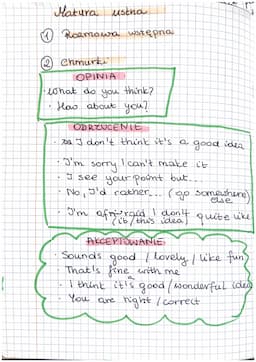 Matura ustna
① Rozmowa wstępna
② Chmurki
OPINIA
· What do you think?
· How about you?
ODRZUCENIE
· I don't think it's a good idea
· I'm sorry I can't make it
· I see your point but...
· No, I'd rather... (go somewhere)
else
· I'm afraid I don't quite like
(it/this idea)
AKCEPTOWANIE
· Sounds good / lovely / like fun
· That's fine with me
· I think it's a good/wonderful idea
· You are right / correct